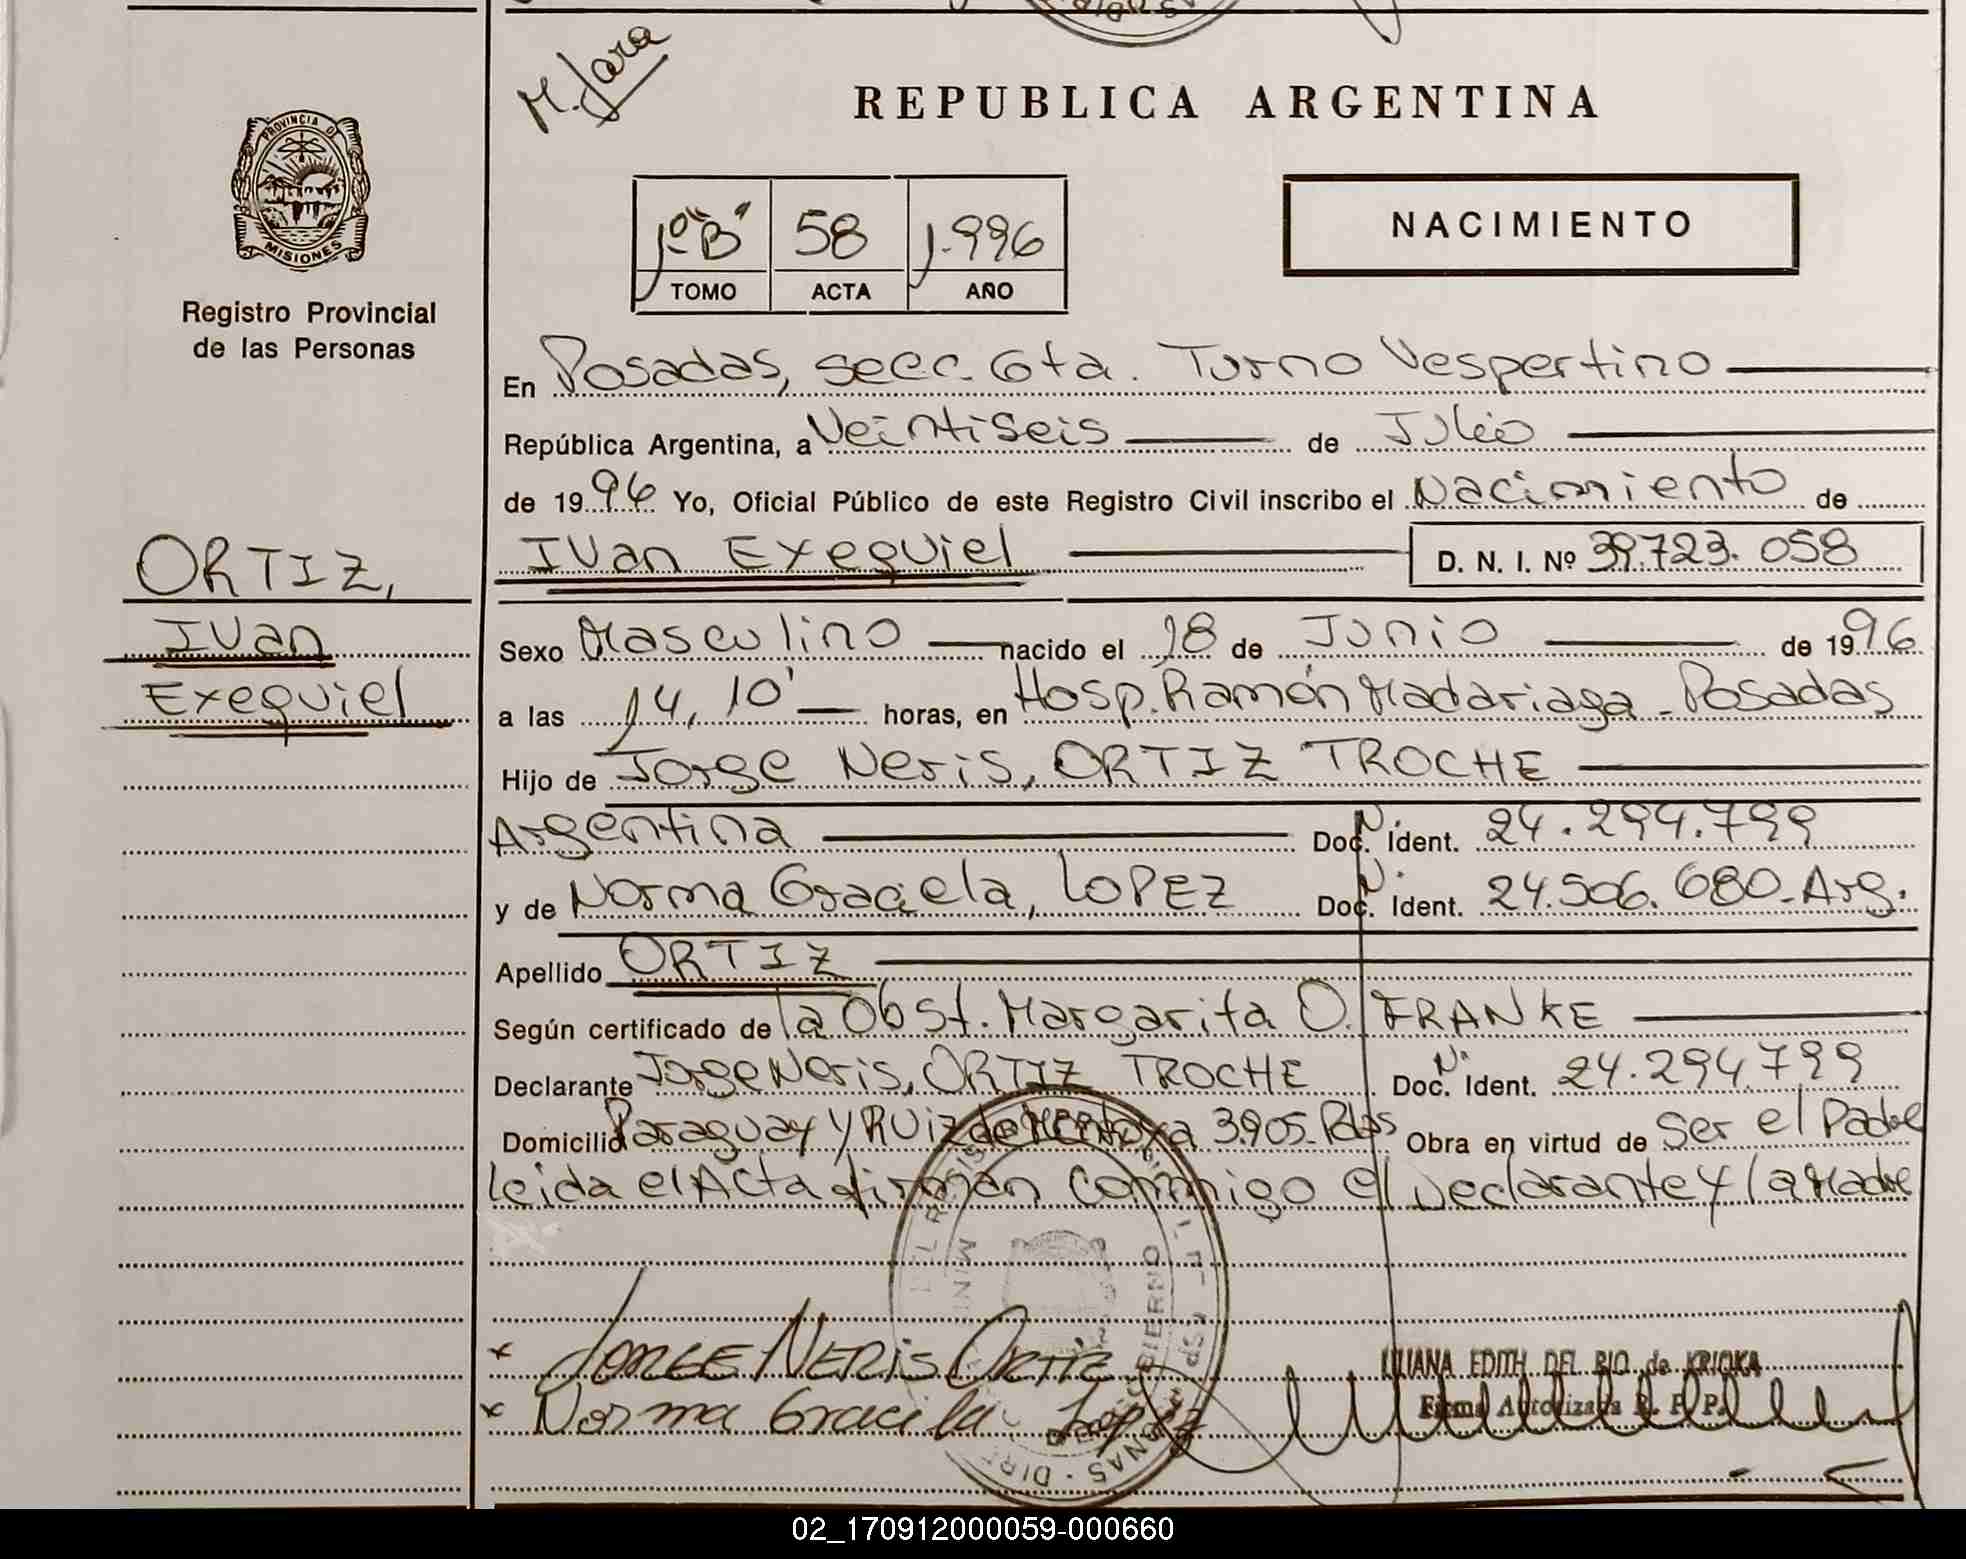 M. Jara
REPUBLICA ARGENTINA
PROVINCIA D
MISIONES
Registro Provincial
de las Personas
1º "B" 58 1.996
TOMO ACTA AÑO
NACIMIENTO
En Posadas, secc. 6ta. Turno Vespertino
República Argentina, a Veintiseis de Julio
de 1996 Yo, Oficial Público de este Registro Civil inscribo el Nacimiento de
Ivan Exequiel D. N. I. Nº 39.723.058
ORTIZ,
Ivan
Exequiel
Sexo Masculino nacido el 18 de Junio de 1996
a las 14,10' horas, en Hosp. Ramón Madariaga - Posadas
Hijo de Jorge Neris, ORTIZ TROCHE
Argentina Doc. N. Ident. 24.294.799
y de Norma Graciela, LOPEZ Doc. N. Ident. 24.506.680-Arg.
Apellido ORTIZ
Según certificado de la Obst. Margarita O. FRANKE
Declarante Jorge Neris, ORTIZ TROCHE Doc. N. Ident. 24.294799
Domicilio Paraguay y Ruiz de Montoya 3.905-Pdas Obra en virtud de ser el Padre
Leida el Acta firman conmigo el Declarante y la Madre
JORGE NERIS ORTIZ
LILIANA EDITH DEL RIO de KRIOKA
Norma Graciela Lopez
Firma Autorizada R. P. P.
02_170912000059-000660